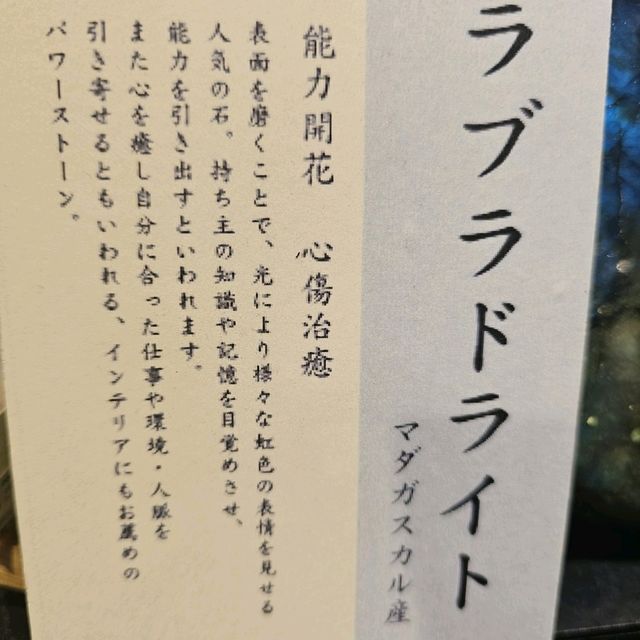 ラブラドライト
マダガスカル産
能力開花 心傷治癒
表面を磨くことで、光により様々な虹色の表情を見せる
人気の石。持ち主の知識や記憶を目覚めさせ、
能力を引き出すといわれます。
また心を癒し自分に合った仕事や環境・人脈を
引き寄せるともいわれる、インテリアにもお薦めの
パワーストーン。